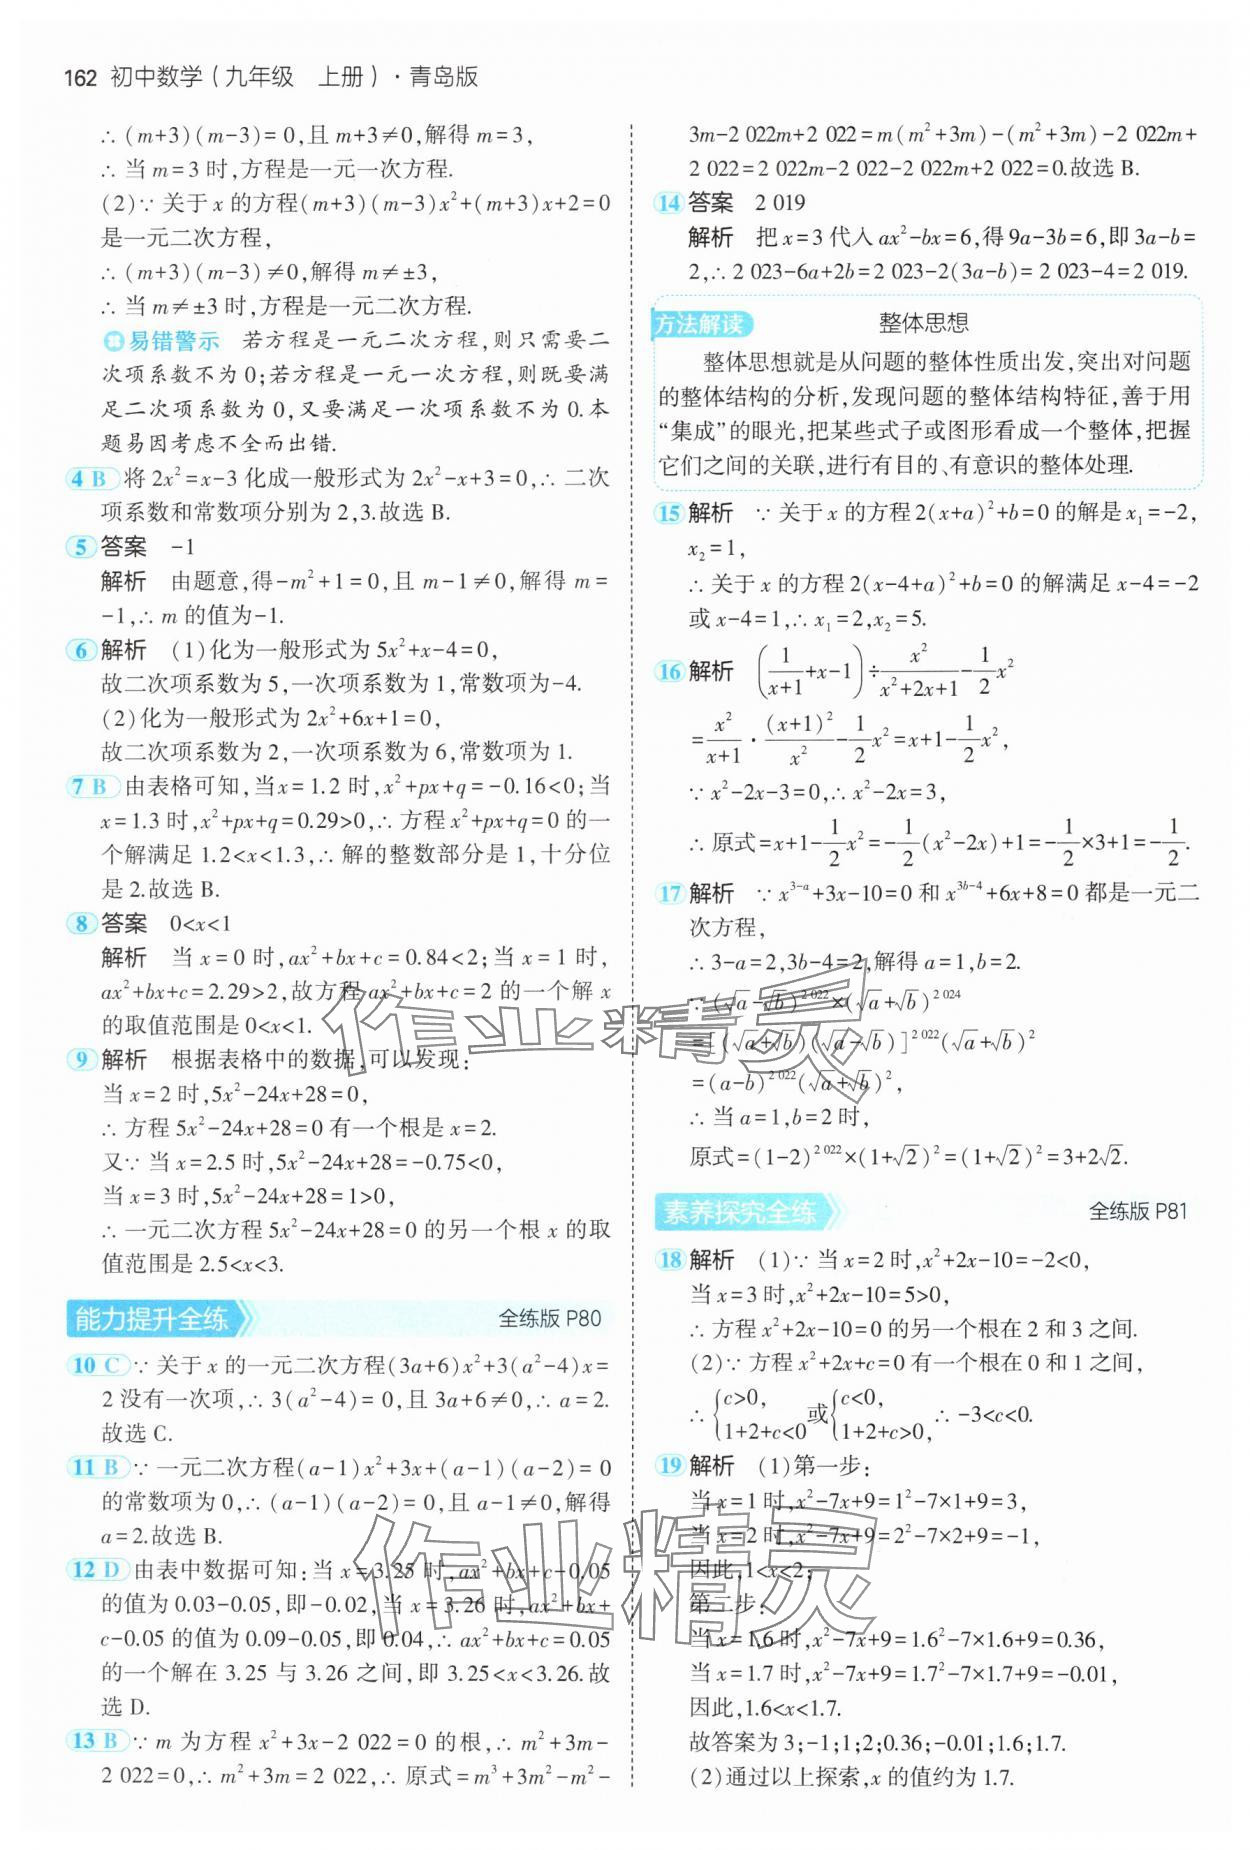 162 初中数学(九年级 上册)·青岛版
∴ (m+3)(m-3)=0,且 m+3≠0,解得 m=3,
∴ 当 m=3 时,方程是一元一次方程.
(2)∵ 关于 x 的方程(m+3)(m-3)x²+(m+3)x+2=0
是一元二次方程,
∴ (m+3)(m-3)≠0,解得 m≠±3,
∴ 当 m≠±3 时,方程是一元二次方程.
易错警示 若方程是一元二次方程,则只需要二
次项系数不为 0;若方程是一元一次方程,则既要满
足二次项系数为 0,又要满足一次项系数不为 0.本
题易因考虑不全而出错.
4 B 将 2x²=x-3 化成一般形式为 2x²-x+3=0,∴ 二次
项系数和常数项分别为 2,3.故选 B.
5 答案 -1
解析 由题意,得-m²+1=0,且 m-1≠0,解得 m=
-1,∴ m 的值为-1.
6 解析 (1)化为一般形式为 5x²+x-4=0,
故二次项系数为 5,一次项系数为 1,常数项为-4.
(2)化为一般形式为 2x²+6x+1=0,
故二次项系数为 2,一次项系数为 6,常数项为 1.
7 B 由表格可知,当x=1.2 时,x²+px+q=-0.16<0;当
x=1.3 时,x²+px+q=0.29>0,∴ 方程 x²+px+q=0 的一
个解满足 1.2<x<1.3,∴ 解的整数部分是 1,十分位
是 2.故选 B.
8 答案 0<x<1
解析 当 x=0 时,ax²+bx+c=0.84<2;当 x=1 时,
ax²+bx+c=2.29>2,故方程 ax²+bx+c=2 的一个解 x
的取值范围是 0<x<1.
9 解析 根据表格中的数据,可以发现:
当 x=2 时,5x²-24x+28=0,
∴ 方程 5x²-24x+28=0 有一个根是 x=2.
又∵ 当 x=2.5 时,5x²-24x+28=-0.75<0,
当 x=3 时,5x²-24x+28=1>0,
∴ 一元二次方程 5x²-24x+28=0 的另一个根 x 的取
值范围是 2.5<x<3.
能力提升全练 全练版 P80
10 C ∵ 关于 x 的一元二次方程(3a+6)x²+3(a²-4)x=
2 没有一次项,∴ 3(a²-4)=0,且 3a+6≠0,∴ a=2.
故选 C.
11 B ∵ 一元二次方程(a-1)x²+3x+(a-1)(a-2)=0
的常数项为 0,∴ (a-1)(a-2)=0,且 a-1≠0,解得
a=2.故选 B.
12 D 由表中数据可知:当 x=3.25 时,ax²+bx+c-0.05
的值为 0.03-0.05,即-0.02,当 x=3.26 时,ax²+bx+
c-0.05 的值为 0.09-0.05,即 0.04,∴ ax²+bx+c=0.05
的一个解在 3.25 与 3.26 之间,即 3.25<x<3.26.故
选 D.
13 B ∵ m 为方程 x²+3x-2 022=0 的根,∴ m²+3m-
2 022=0,∴ m²+3m=2 022,∴ 原式=m³+3m²-m²-
3m-2 022m+2 022=m(m²+3m)-(m²+3m)-2 022m+
2 022=2 022m-2 022-2 022m+2 022=0.故选 B.
14 答案 2 019
解析 把 x=3 代入 ax²-bx=6,得 9a-3b=6,即 3a-b=
2,∴ 2 023-6a+2b=2 023-2(3a-b)=2 023-4=2 019.
方法解读 整体思想
整体思想就是从问题的整体性质出发,突出对问题
的整体结构的分析,发现问题的整体结构特征,善于用
“集成”的眼光,把某些式子或图形看成一个整体,把握
它们之间的关联,进行有目的、有意识的整体处理.
15 解析 ∵ 关于 x 的方程 2(x+a)²+b=0 的解是 x₁=-2,
x₂=1,
∴ 关于 x 的方程 2(x-4+a)²+b=0 的解满足 x-4=-2
或 x-4=1,∴ x₁=2,x₂=5.
16 解析 (1/(x+1)+x-1)÷x²/(x²+2x+1)-1/2x²
=x²/(x+1)·(x+1)²/x²-1/2x²=x+1-1/2x²,
∵ x²-2x-3=0,∴ x²-2x=3,
∴ 原式=x+1-1/2x²=-1/2(x²-2x)+1=-1/2×3+1=-1/2.
17 解析 ∵ x³⁻ᵃ+3x-10=0 和 x³ᵇ⁻⁴+6x+8=0 都是一元二
次方程,
∴ 3-a=2,3b-4=2,解得 a=1,b=2.
∵ (√a-√b)²⁰²²×(√a+√b)²⁰²⁴
=[(√a+√b)(√a-√b)]²⁰²²(√a+√b)²
=(a-b)²⁰²²(√a+√b)²,
∴ 当 a=1,b=2 时,
原式=(1-2)²⁰²²×(1+√2)²=(1+√2)²=3+2√2.
素养探究全练 全练版 P81
18 解析 (1)∵ 当 x=2 时,x²+2x-10=-2<0,
当 x=3 时,x²+2x-10=5>0,
∴ 方程 x²+2x-10=0 的另一个根在 2 和 3 之间.
(2)∵ 方程 x²+2x+c=0 有一个根在 0 和 1 之间,
∴ {c>0, 1+2+c<0 或 {c<0, 1+2+c>0, ∴ -3<c<0.
19 解析 (1)第一步:
当 x=1 时,x²-7x+9=1²-7×1+9=3,
当 x=2 时,x²-7x+9=2²-7×2+9=-1,
因此,1<x<2;
第二步:
当 x=1.6 时,x²-7x+9=1.6²-7×1.6+9=0.36,
当 x=1.7 时,x²-7x+9=1.7²-7×1.7+9=-0.01,
因此,1.6<x<1.7.
故答案为 3;-1;1;2;0.36;-0.01;1.6;1.7.
(2)通过以上探索,x 的值约为 1.7.
作业精灵
作业精灵